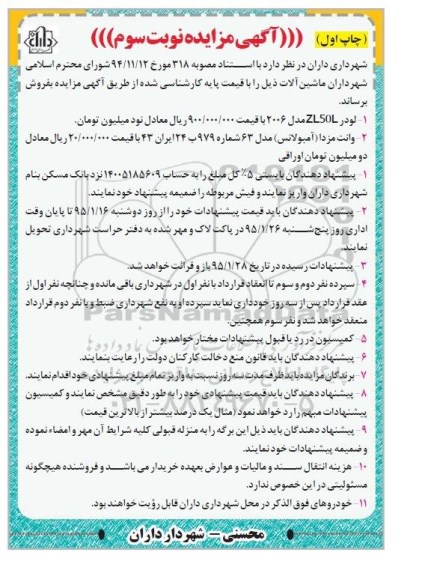 (چاپ اول)
(((آگهی مزایده نوبت سوم)))
شهرداری داران در نظر دارد با استناد مصوبه ۳۱۸ مورخ ۹۴/۱۱/۱۲ شورای محترم اسلامی
شهر داران ماشین آلات ذیل را با قیمت پایه کارشناسی شده از طریق آگهی مزایده بفروش
برساند.
۱- لودر ZL50L مدل ۲۰۰۶ با قیمت ۹۰۰/۰۰۰/۰۰۰ ریال معادل نود میلیون تومان.
۲- وانت مزدا (آمبولانس) مدل ۶۳ شماره ۹۷۹ ب ۲۴ ایران ۴۳ با قیمت ۲۰/۰۰۰/۰۰۰ ریال معادل
دو میلیون تومان اوراقی
۱- پیشنهاد دهندگان بایستی ۵٪ کل مبلغ را به حساب ۱۴۰۰۵۱۸۵۶۰۹ نزد بانک مسکن بنام
شهرداری داران واریز نمایند و فیش مربوطه را ضمیمه پیشنهاد خود نمایند.
۲- پیشنهاد دهندگان باید قیمت پیشنهادات خود را از روز دوشنبه ۹۵/۱/۱۶ تا پایان وقت
اداری روز پنج‌شنبه ۹۵/۱/۲۶ در پاکت لاک و مهر شده به دفتر حراست شهرداری تحویل
نمایند.
۳- پیشنهادات رسیده در تاریخ ۹۵/۱/۲۸ باز و قرائت خواهد شد.
۴- سپرده نفر دوم و سوم تا انعقاد قرارداد با نفر اول در شهرداری باقی مانده و چنانچه نفر اول از
عقد قرارداد پس از سه روز خودداری نماید سپرده او به نفع شهرداری ضبط و با نفر دوم قرارداد
منعقد خواهد شد و نفر سوم همچنین.
۵- کمیسیون در رد یا قبول پیشنهادات مختار خواهد بود.
۶- پیشنهاد دهندگان باید قانون منع دخالت کارکنان دولت را رعایت بنمایند.
۷- برندگان مزایده باید ظرف مدت سه روز نسبت به واریز تمام مبلغ پیشنهادی خود اقدام نمایند.
۸- پیشنهاد دهندگان باید قیمت پیشنهادی خود را به طور دقیق مشخص نمایند و کمیسیون
پیشنهادات مبهم را رد خواهد نمود (مثال یک درصد بیشتر از بالاترین قیمت)
۹- پیشنهاد دهندگان باید ذیل این برگه را به منزله قبولی کلیه شرایط آن مهر و امضاء نموده
و ضمیمه پیشنهادات خود نمایند.
۱۰- هزینه انتقال سند و مالیات و عوارض بعهده خریدار می باشد و فروشنده هیچگونه
مسئولیتی در این خصوص ندارد.
۱۱- خودروهای فوق الذکر در محل شهرداری داران قابل رؤیت خواهند بود.
محسنی - شهردار داران